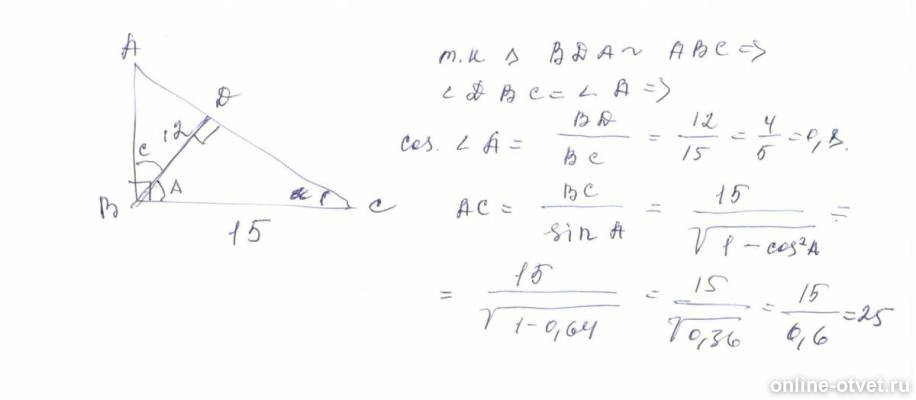 A
D
12
C
A
B
α
C
15
т.к △ BDA ~ ABC =>
∠DBC = ∠A =>
cos. ∠A = BD/BC = 12/15 = 4/5 = 0,8.
AC = BC/sin A = 15/√(1 - cos²A) =
= 15/√(1-0,64) = 15/√0,36 = 15/0,6 = 25
online-otvet.ru